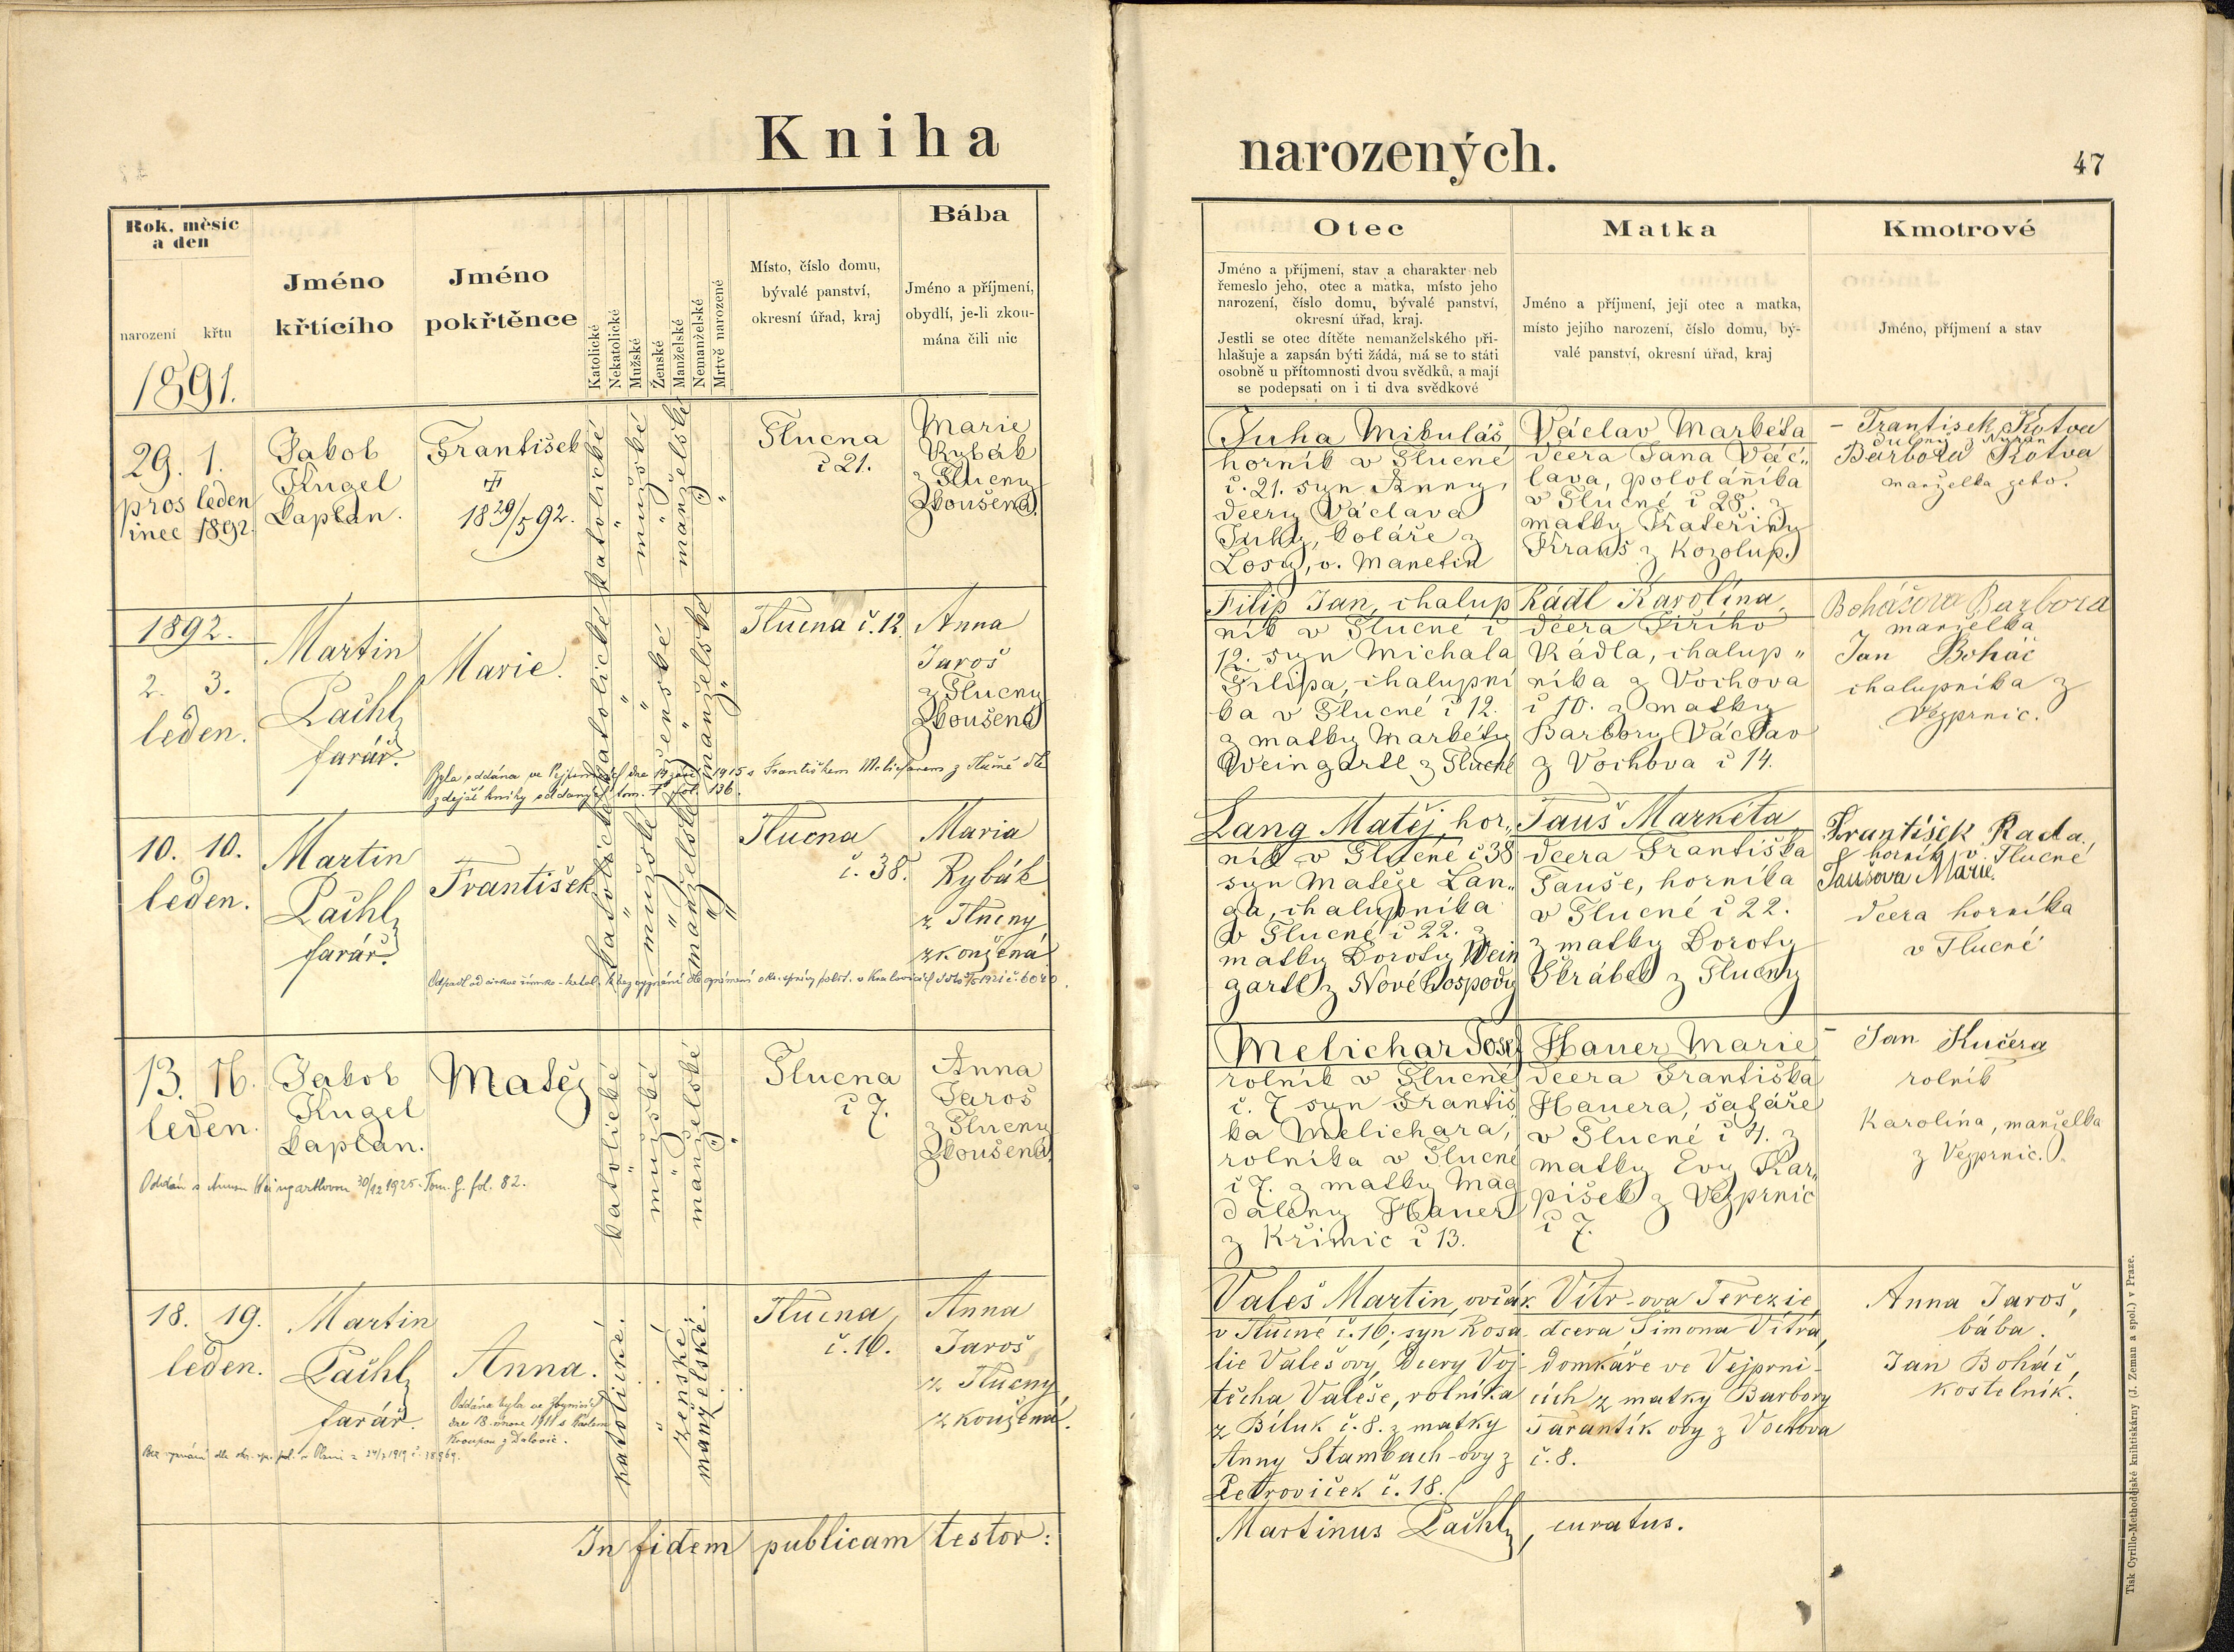 Kniha
narozených.
47
Rok, měsíc
a den
narození křtu
Jméno
křtícího
Jméno
pokřtěnce
Katolické
Nekatolické
Mužské
Ženské
Manželské
Nemanželské
Mrtvě narozené
Místo, číslo domu,
bývalé panství,
okresní úřad, kraj
Bába
Jméno a příjmení,
obydlí, je-li zkou-
mána čili nic
Otec
Jméno a příjmení, stav a charakter neb
řemeslo jeho, otec a matka, místo jeho
narození, číslo domu, bývalé panství,
okresní úřad, kraj.
Jestli se otec dítěte nemanželského při-
hlašuje a zapsán býti žádá, má se to státi
osobně u přítomnosti dvou svědků, a mají
se podepsati on i ti dva svědkové
Matka
Jméno a příjmení, její otec a matka,
místo jejího narození, číslo domu, bý-
valé panství, okresní úřad, kraj
Kmotrové
Jméno, příjmení a stav
1891.
29. 1.
pros leden
inec 1892.
Jakob
Kugel
kaplan.
František
18 29/5 92.
katolické
mužské
manželské
Tlucna
č 21.
Marie
Rybák
z Tlucny
zkoušená.
Juha Mikuláš
horník v Tlucné
č. 21. syn Anny,
dcery Václava
Juhy, koláře z
Losy, o. Manetin
Václav Markéta
dcera Jana Vác„
lava, pololáníka
v Tlucné č 28. z
matky Kateřiny
Kraus z Kozolup.
– František Kotva
Barbora Kotva
manželka jeho.
1892.
2. 3.
leden.
Martin
Pachl,
farář.
Marie.
katolické
ženské
manželské
Tlucna č. 12.
Anna
Jaroš
z Tlucny
zkoušená
Filip Jan, chalup
ník v Tlucné č
12. syn Michala
Filipa, chalupní
ka v Tlucné č 12.
z matky Markéty
Weingartl z Tlucné
Kádl Karolína,
dcera Jiřího
Kádla, chalup„
níka z Vochova
č 10. z matky
Barbory Václav
z Vochova č 14.
Boháčova Barbora
manželka
Jan Boháč
chalupníka z
Vejprnic.
10. 10.
leden.
Martin
Pachl,
farář.
František
katolické
mužské
manželské
Tlucna
č. 38.
Maria
Rybák
z Tlucny
zkoušená
Lang Matěj, hor„
ník v Tlucné č 38
syn Matěje Lan„
ga, chalupníka
v Tlucné č 22. z
matky Doroty Wein
gartl z Nové hospody
Tauš Markéta
dcera Františka
Tauše, horníka
v Tlucné č 22.
z matky Doroty
Škrábek z Tlucny
František Rada,
horník v Tlucné
Taušova Marie.
dcera horníka
v Tlucné
13. 16.
leden.
Jakob
Kugel
kaplan.
Matěj
katolické
mužské
manželské
Tlucna
č 7.
Anna
Jaroš
z Tlucny
zkoušená.
Oddán s Annou Weingartlovou 30/12 1925. Tom. g. fol. 82.
Melichar Josef
rolník v Tlucné
č. 7 syn Františ
ka Melichara,
rolníka v Tlucné
č 7. z matky Mag
daleny Hauer
z Křimic č 13.
Hauer Marie
dcera Františka
Hauera, šafáře
v Tlucné č 4. z
matky Evy Kar„
píšek z Vejprnic
č 7.
– Jan Kučera
rolník
Karolína, manželka
z Vejprnic.
18. 19.
leden.
Martin
Pachl,
farář.
Anna.
katolické.
ženské.
manželské.
Tlucna,
č. 16.
Anna
Jaroš
z Tlucny
zkoušená.
Valeš Martin, ovčák
v Tlucné č. 16; syn Rosa-
lie Valešovy, dcery Voj-
těcha Valeše, rolníka
z Bíluk č. 8. z matky
Anny Stambach-ovy z
Petroviček č. 18.
Vítr-ova Terezie,
dcera Šimona Vítra,
domkáře ve Vejprni-
cích z matky Barbory
Tarantík ovy z Vochova
č. 8.
Anna Jaroš,
bába.
Jan Boháč,
kostelník.
In fidem publicam testor:
Martinus Pachl, curatus.
Tisk Cyrillo-Methodějské knihtiskárny (J. Zeman a spol.) v Praze.